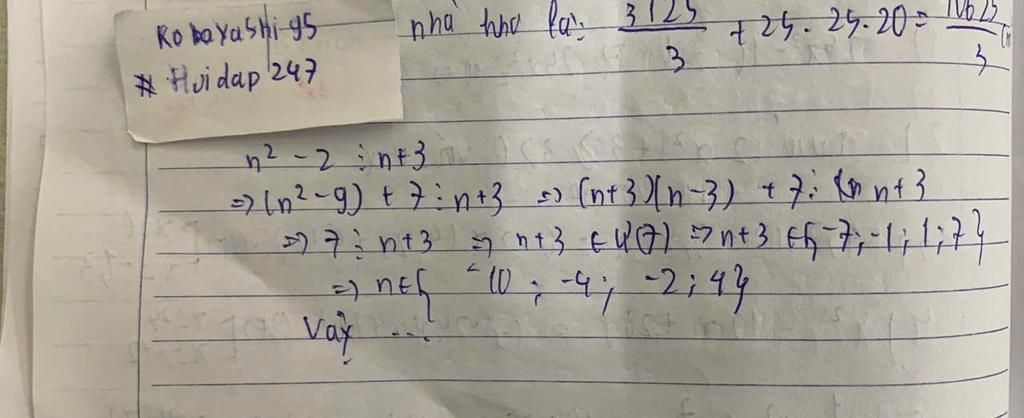 Kobayashi95
# Hoidap 247
nhà kho là: 3125/3 + 25. 25.20 = 10625/3
n² - 2 ⋮ n+3
=> (n² - 9) + 7 ⋮ n+3 => (n+3)(n-3) + 7 ⋮ n+3
=> 7 ⋮ n+3 => n+3 ∈ Ư(7) => n+3 ∈ {-7; -1; 1; 7}
=> n ∈ { -10 ; -4; -2; 4}
Vậy ...